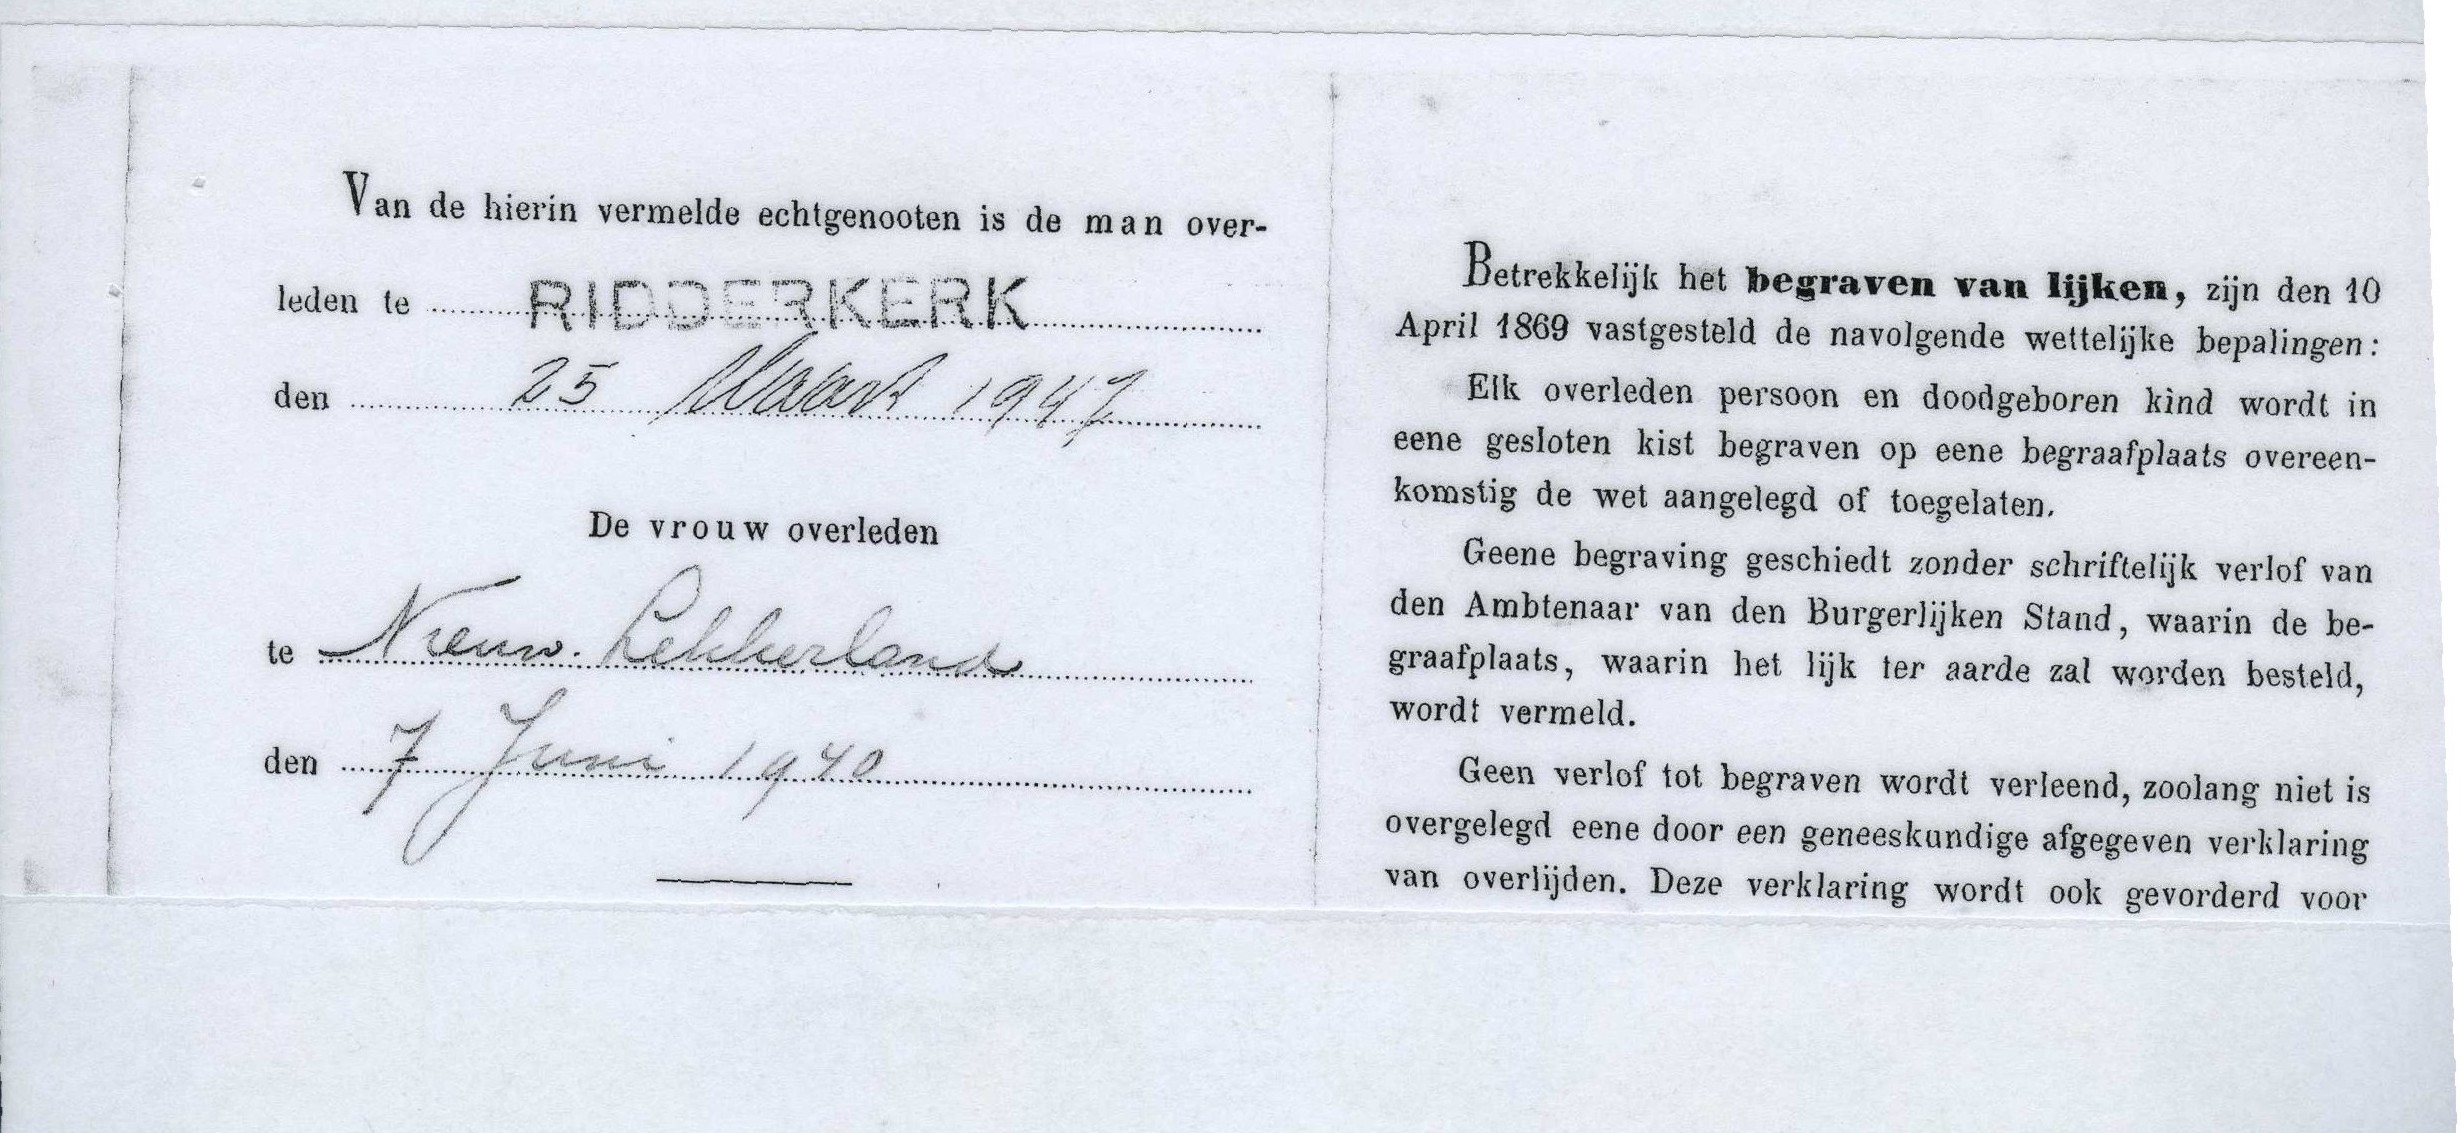 Van de hierin vermelde echtgenooten is de man over-
leden te RIDDERKERK
den 25 Maart 1947
De vrouw overleden
te Nieuw-Lekkerland
den 7 Juni 1940
Betrekkelijk het begraven van lijken, zijn den 10
April 1869 vastgesteld de navolgende wettelijke bepalingen:
Elk overleden persoon en doodgeboren kind wordt in
eene gesloten kist begraven op eene begraafplaats overeen-
komstig de wet aangelegd of toegelaten.
Geene begraving geschiedt zonder schriftelijk verlof van
den Ambtenaar van den Burgerlijken Stand, waarin de be-
graafplaats, waarin het lijk ter aarde zal worden besteld,
wordt vermeld.
Geen verlof tot begraven wordt verleend, zoolang niet is
overgelegd eene door een geneeskundige afgegeven verklaring
van overlijden. Deze verklaring wordt ook gevorderd voor